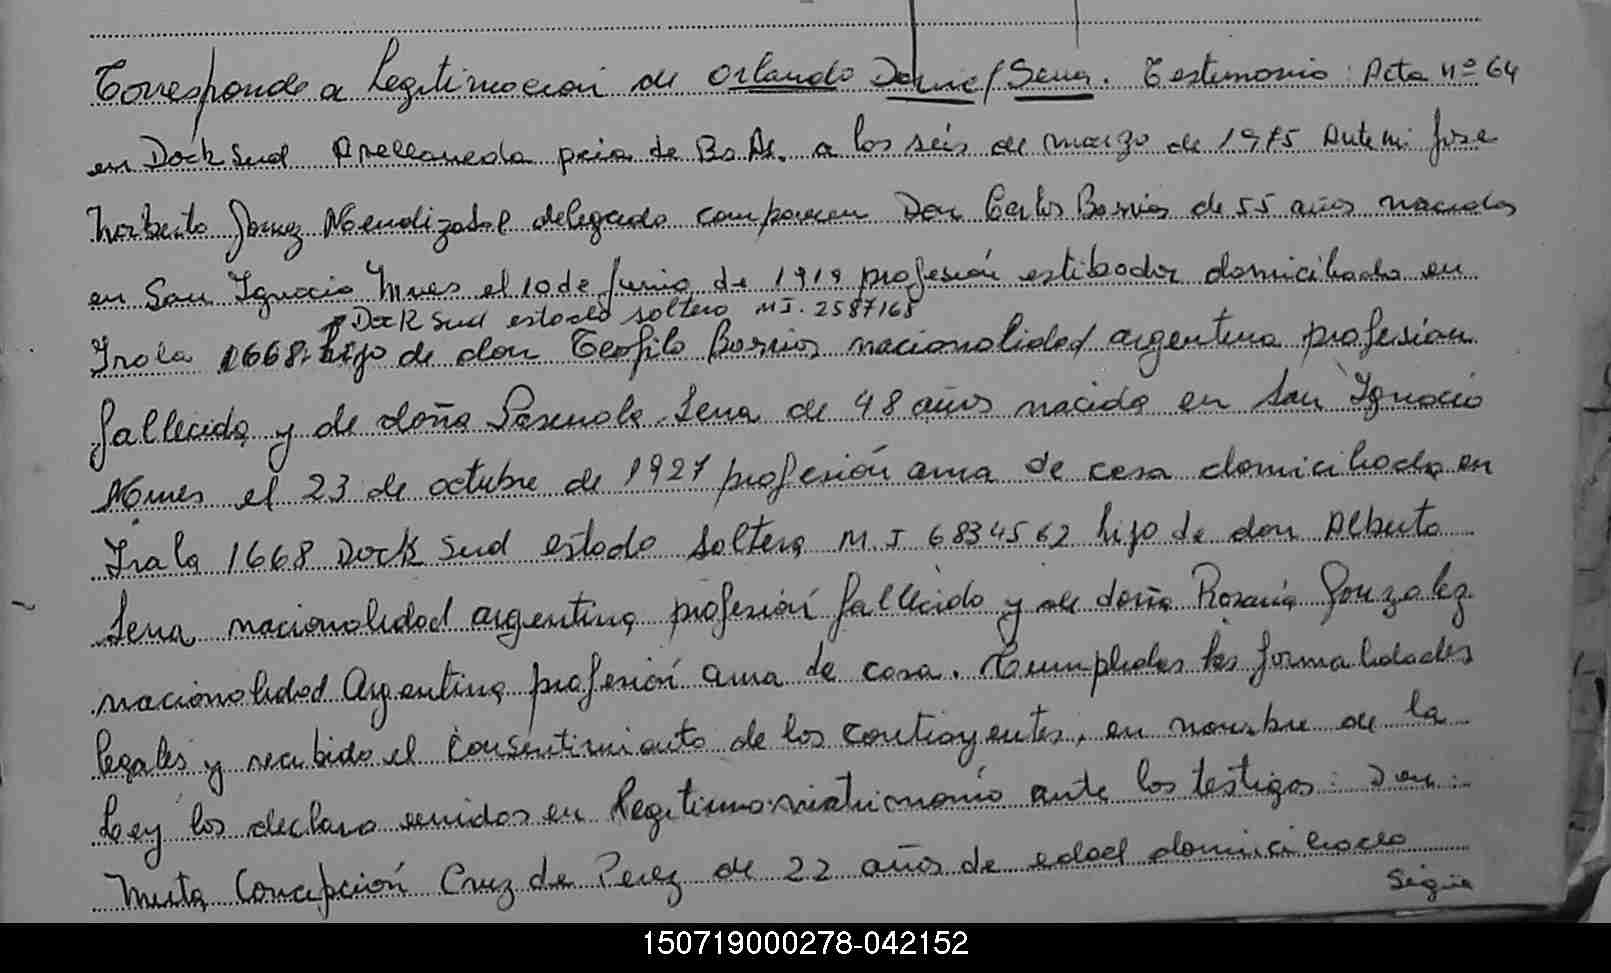 Corresponde a legitimacion de Orlando Daniel Sena. Testimonio: Acta nº 64
en Dock Sud Avellaneda pcia de Bs As. a los seis de marzo de 1975 Ante mi Jose
Norberto Gomez Mendizabal delegado comparecen Don Carlos Barrios de 55 años nacido
en San Ignacio Mnes el 10 de Junio de 1919 profesión estibador domiciliado en
Dock Sud estado soltero MI. 2587168
Irala 1668. hijo de don Teofilo Barrios nacionalidad argentina profesión
fallecido y de doña Pascuala Sena de 48 años nacida en San Ignacio
Mnes el 23 de octubre de 1927 profesión ama de casa domiciliada en
Irala 1668 Dock Sud estado soltera M.I 6834562 hija de don Alberto
Sena nacionalidad argentina profesión fallecido y de doña Rosaria Gonzalez
nacionalidad Argentina profesión ama de casa. Cumplidas las formalidades
legales y recibido el consentimiento de los contrayentes, en nombre de la
Ley los declaro unidos en legitimo matrimonio ante los testigos: Don:
Mirta Concepción Cruz de Perez de 22 años de edad domiciliado
sigue
150719000278-042152